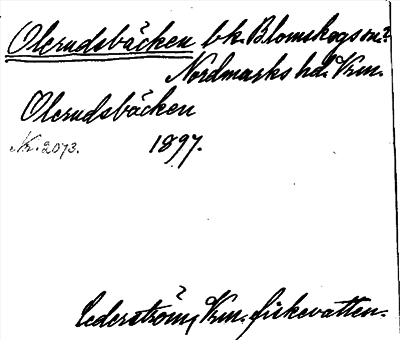 Olerudsbäcken bk. Blomskogs sn?
Nordmarks hd. Vrm.
Olerudsbäcken
Nr. 2073. 1897.
Cederström, Vrm. fiskevatten.